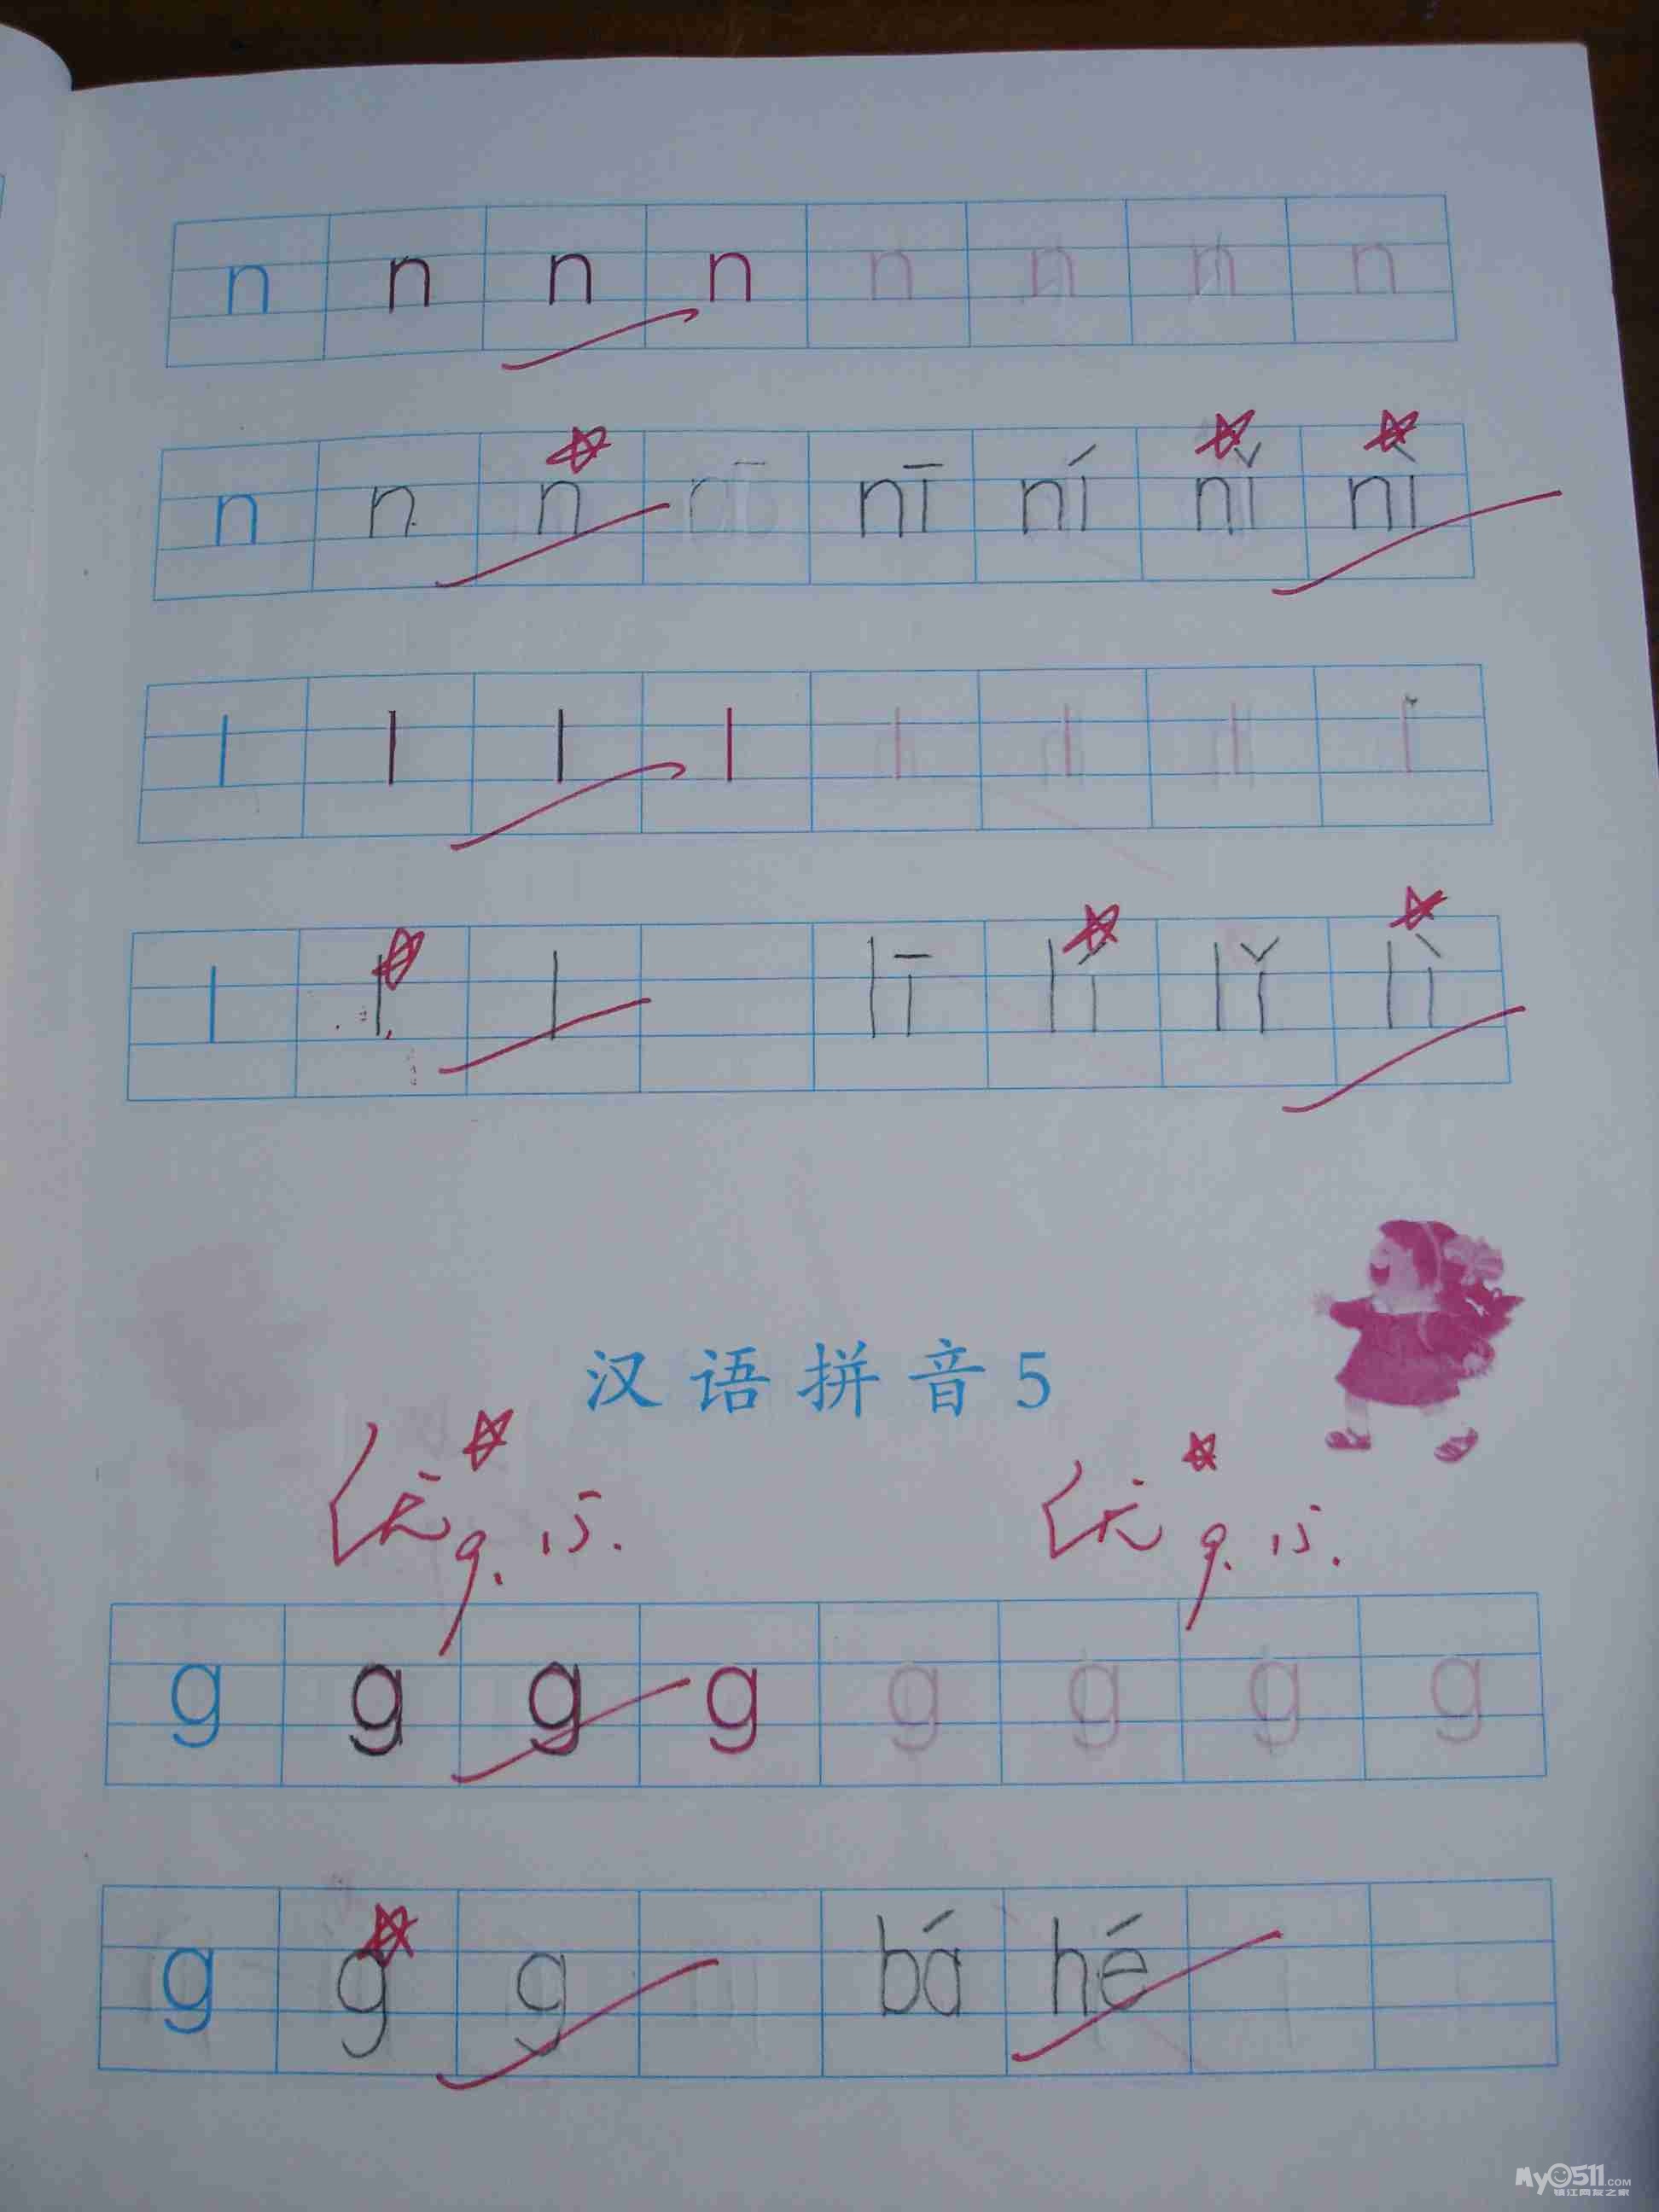 n n n n n n n n
n n n nī ní nǐ nì
l l l l l l l l
l l l lī lí lǐ lì
汉语拼音5
优 9.15. 优 9.15.
g g g g g g g g
g g g bá hé
My0511.COM
镇江网友之家